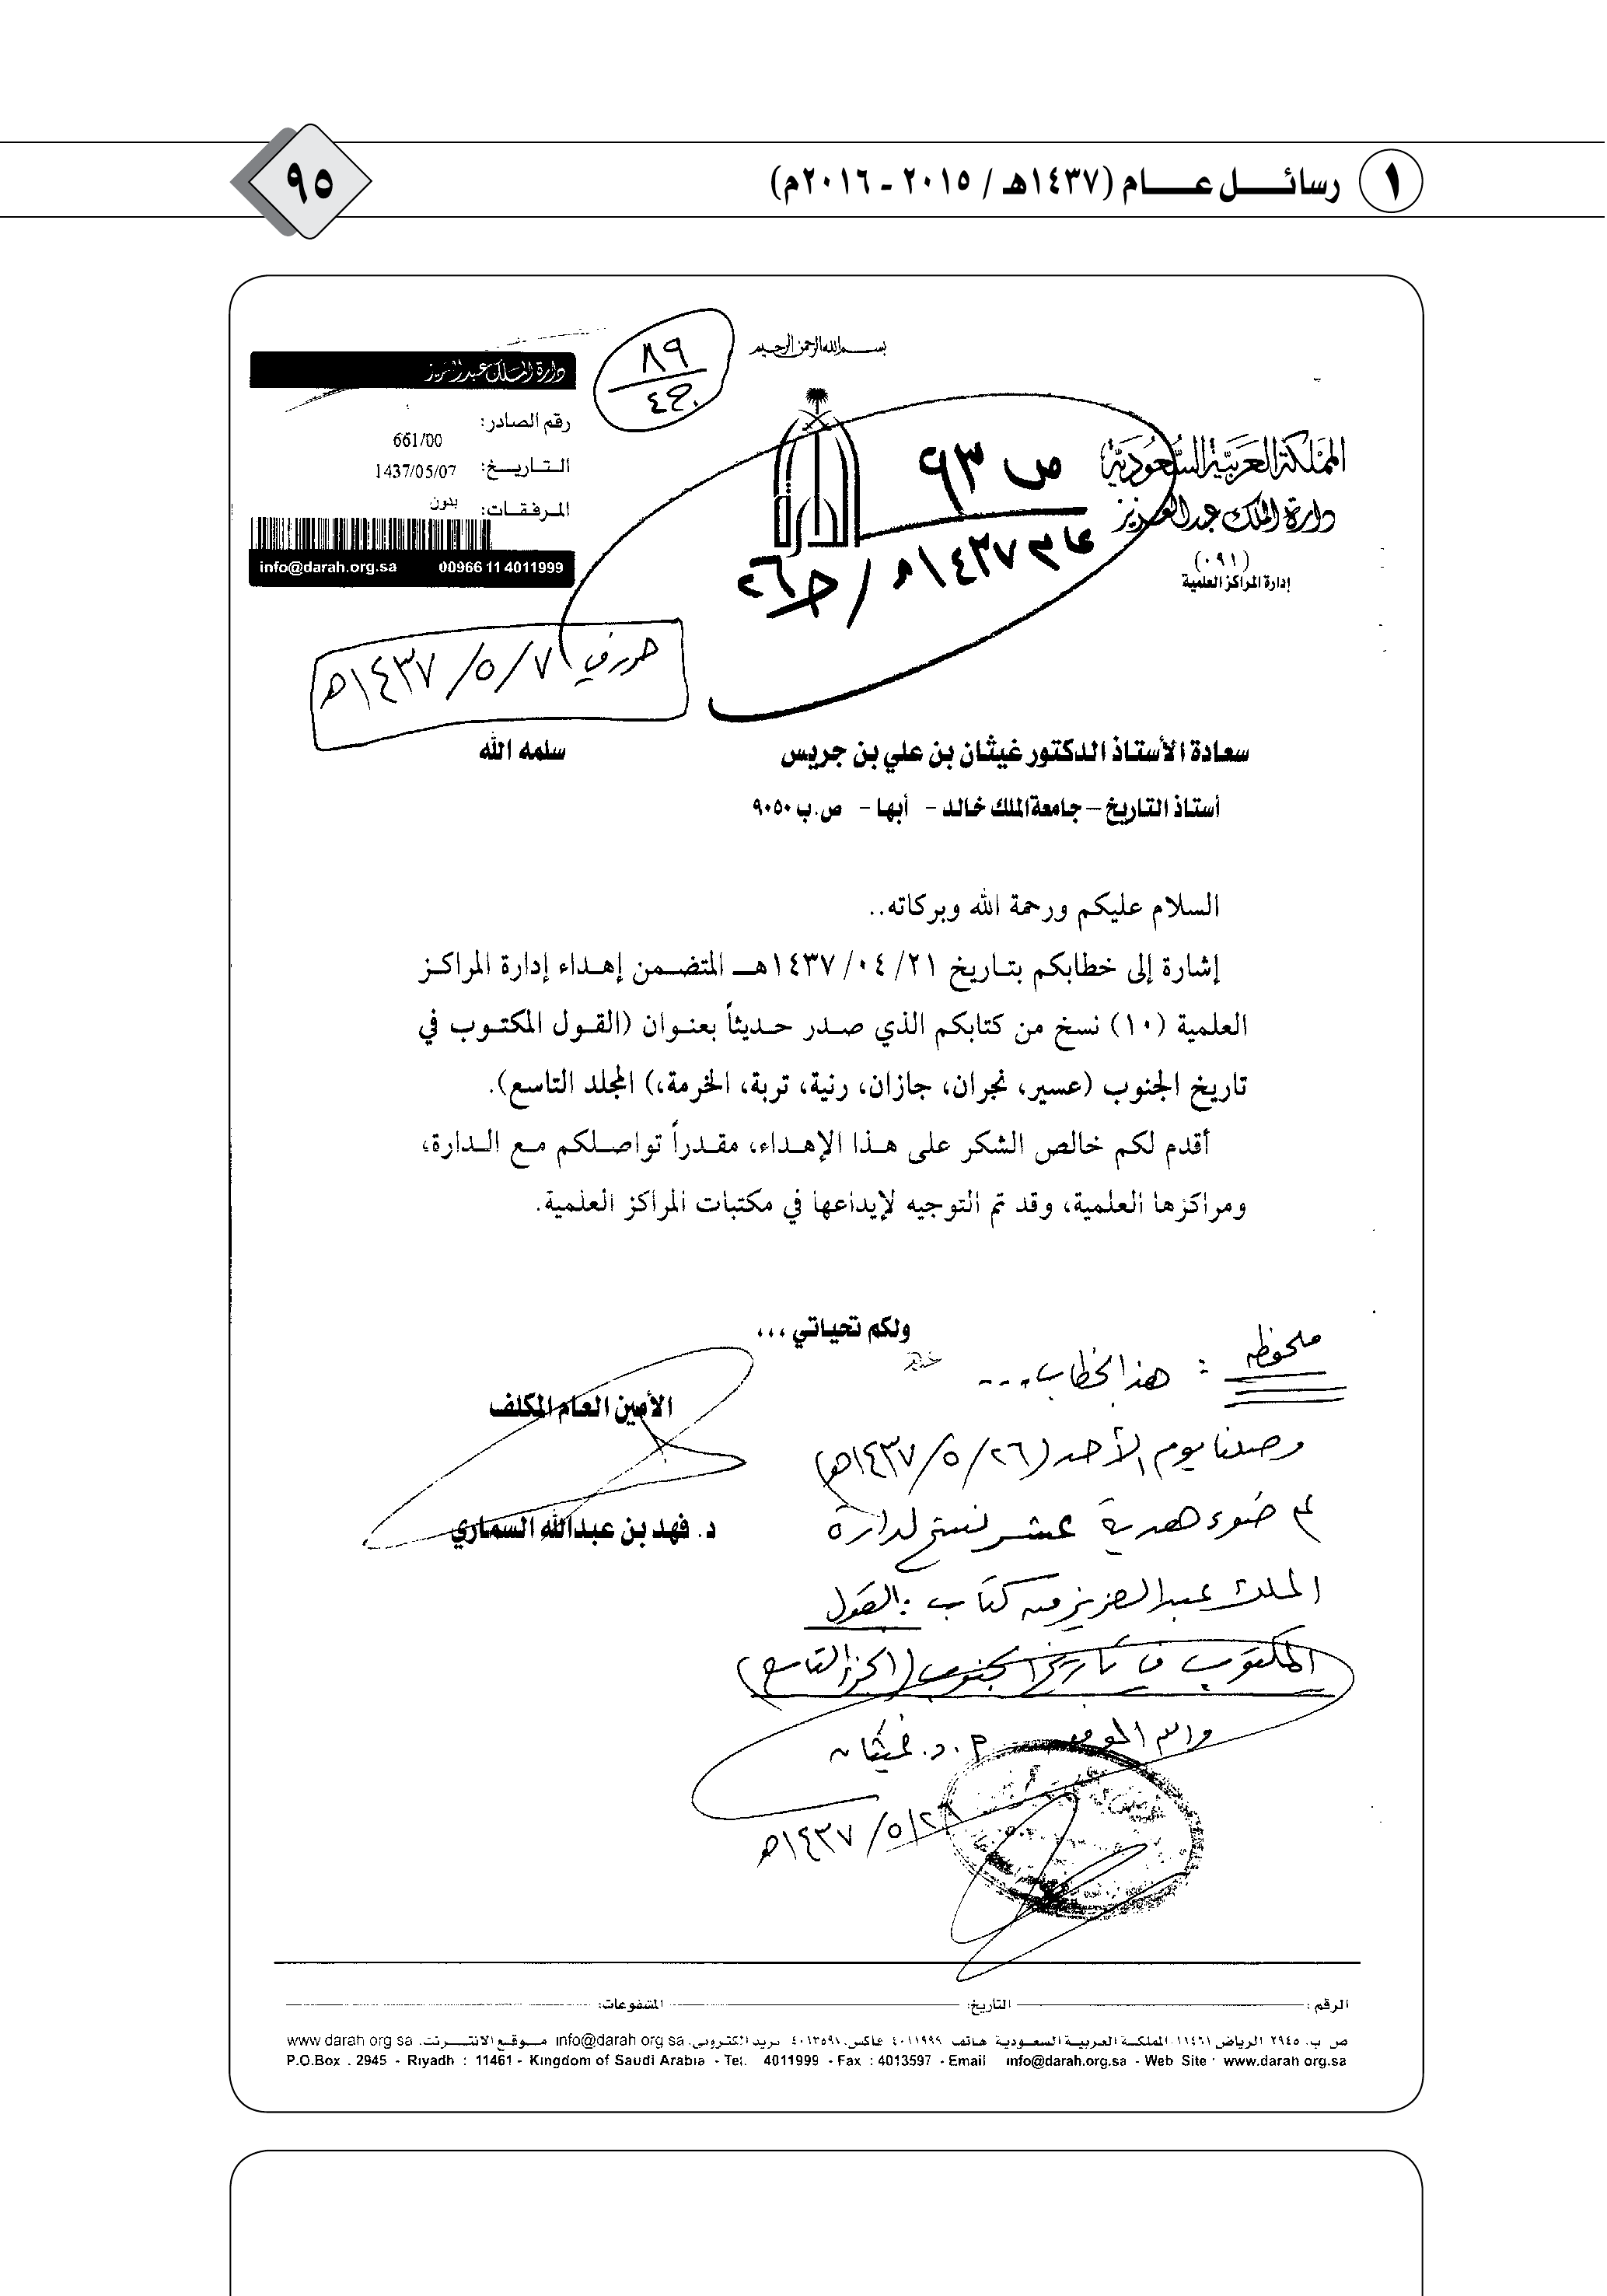 ١ رسائل عام (١٤٣٧هـ / ٢٠١٥ - ٢٠١٦م)
٩٥
بسم الله الرحمن الرحيم
المملكة العربية السعودية
دارة الملك عبدالعزيز
(٠٩١)
إدارة المراكز العلمية
ص ٩٣
عام ١٤٣٧هـ / ج٢٦
٨٩
ج٤
دارة الملك عبدالعزيز
رقم الصادر: 661/00
التاريخ: 1437/05/07
المرفقات: بدون
info@darah.org.sa 00966 11 4011999
حرر في ٧/ ٥/ ١٤٣٧هـ
سعادة الأستاذ الدكتور غيثان بن علي بن جريس سلمه الله
أستاذ التاريخ – جامعة الملك خالد - أبها - ص.ب ٩٠٥٠
السلام عليكم ورحمة الله وبركاته..
إشارة إلى خطابكم بتاريخ ٢١/ ٠٤/ ١٤٣٧هـ المتضمن إهداء إدارة المراكز
العلمية (١٠) نسخ من كتابكم الذي صدر حديثاً بعنوان (القول المكتوب في
تاريخ الجنوب (عسير، نجران، جازان، رنية، تربة، الخرمة،) المجلد التاسع).
أقدم لكم خالص الشكر على هذا الإهداء، مقدراً تواصلكم مع الدارة،
ومراكزها العلمية، وقد تم التوجيه لإيداعها في مكتبات المراكز العلمية.
ولكم تحياتي ،،،
الأمين العام المكلف
د. فهد بن عبدالله السماري
ملحوظه : هذا الخطاب ...
وصلنا يوم الأحد (٢٦/ ٥/ ١٤٣٧هـ)
ضوء هدية عشر نسخ لدارة
الملك عبدالعزيز من كتاب : القول
المكتوب في تاريخ الجنوب (الجزء التاسع)
والله الموفق أ.د. غيثان
٥/ ١٤٣٧هـ
الرقم : التاريخ: المشفوعات:
ص ب. ٢٩٤٥ الرياض ١١٤٦١ المملكة العربية السعودية هاتف ٤٠١١٩٩٩ فاكس. ٤٠١٣٥٩٧ بريد الكتروني. info@darah org sa موقع الانترنت. www darah org sa
P.O.Box . 2945 - Riyadh : 11461 - Kingdom of Saudi Arabia - Tel. 4011999 - Fax : 4013597 - Email info@darah.org.sa - Web Site : www.darah org.sa